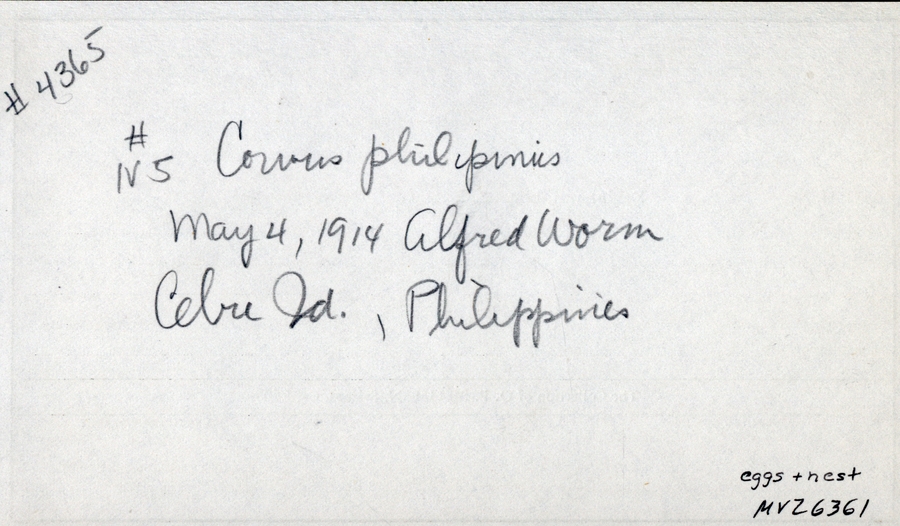 # 4365
#
IV 5 Corvus philipinus
May 4, 1914 Alfred Worm
Cebu Id., Philippines
eggs + nest
MVZ6361